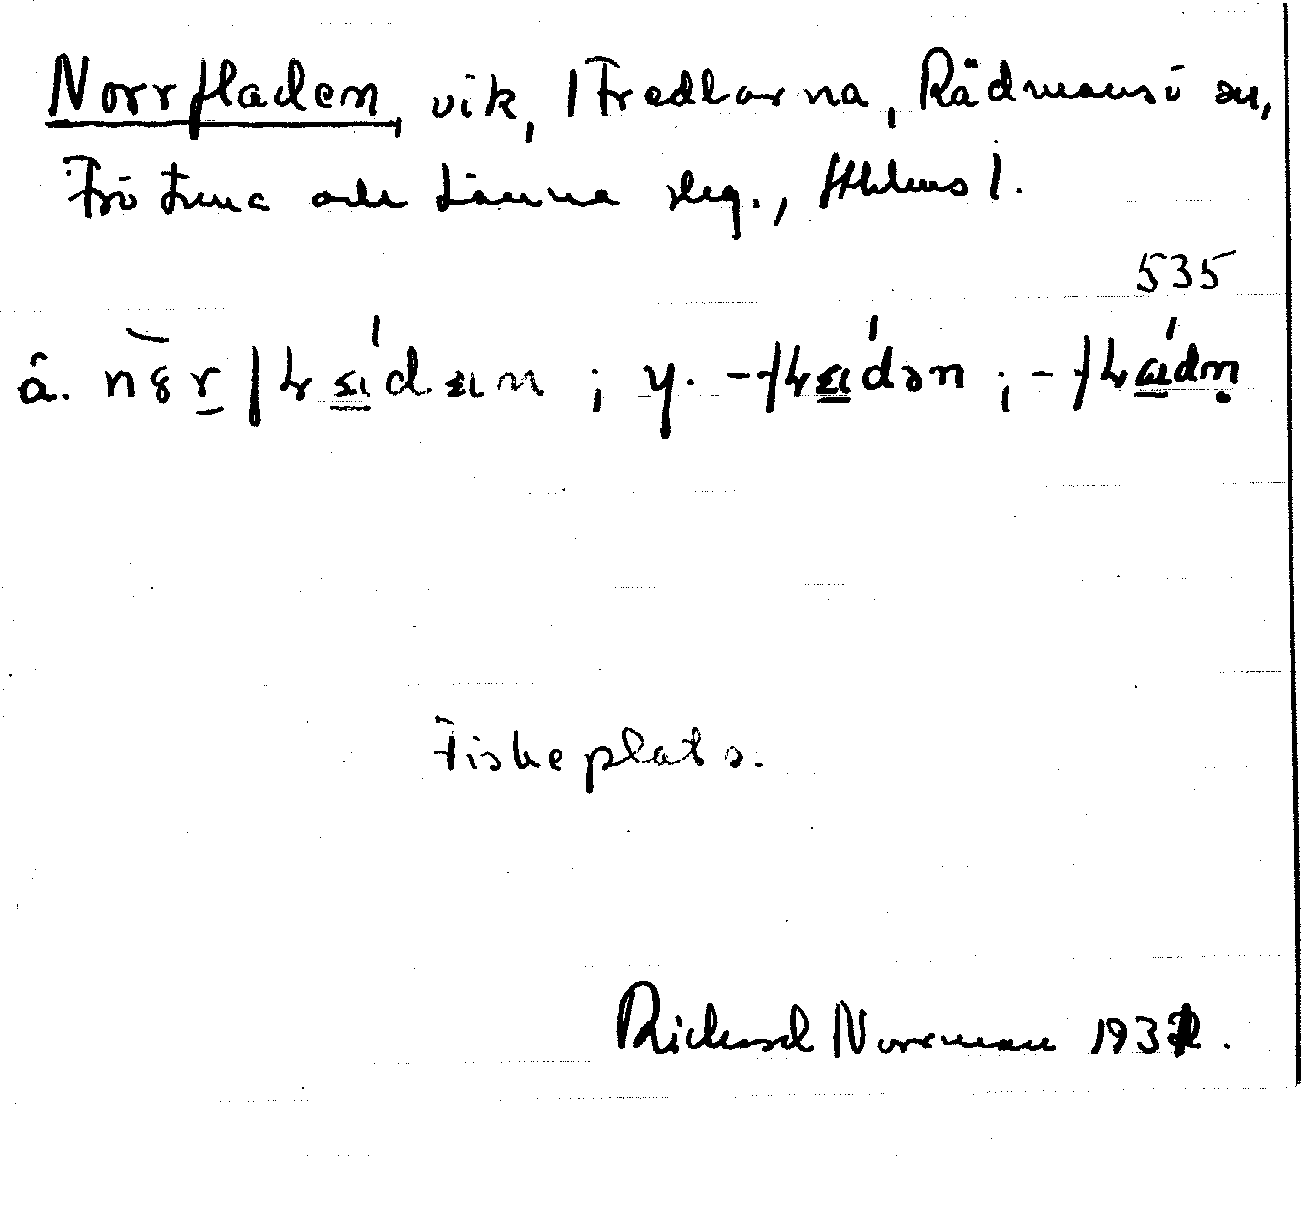 Norrfladen, vik, Tredlarna, Rädmansö sn,
Frötuna och Länna skg., Sthlms l.
535
å. nɞr|fladan ; y. -fladən ; -fladn̥
Fiskeplats.
Richard Norrman 1932.